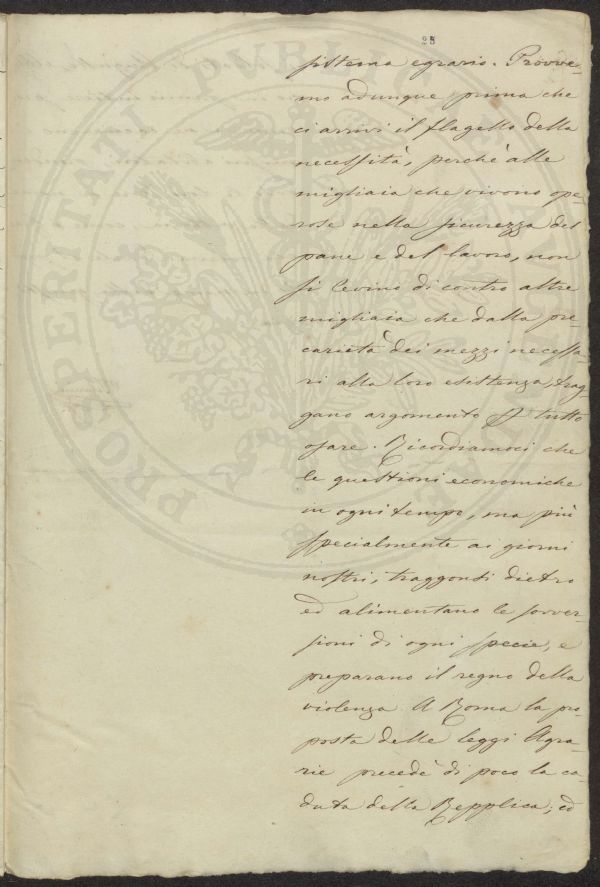 25
sistema egrario. Provve-
mo adunque prima che
ci arrivi il flagello della
necessità, perchè alle
migliaia che vivono ope-
rose nella sicurezza del
pane e del lavoro, non
si levino di contro altre
migliaia che dalla pre-
carietà dei mezzi necessa-
ri alla loro esistenza, trag-
gano argomento p tutto
osare. Ricordiamoci che
le questioni economiche
in ogni tempo, ma più
specialmente ai giorni
nostri, traggonsi dietro
ed alimentano le sovver-
sioni di ogni specie, e
preparano il regno della
violenza. A Roma la pro-
posta delle leggi Agra-
rie precedè di poco la ca-
duta della Repplica; ed
PROSPERITATI PVBLICAE